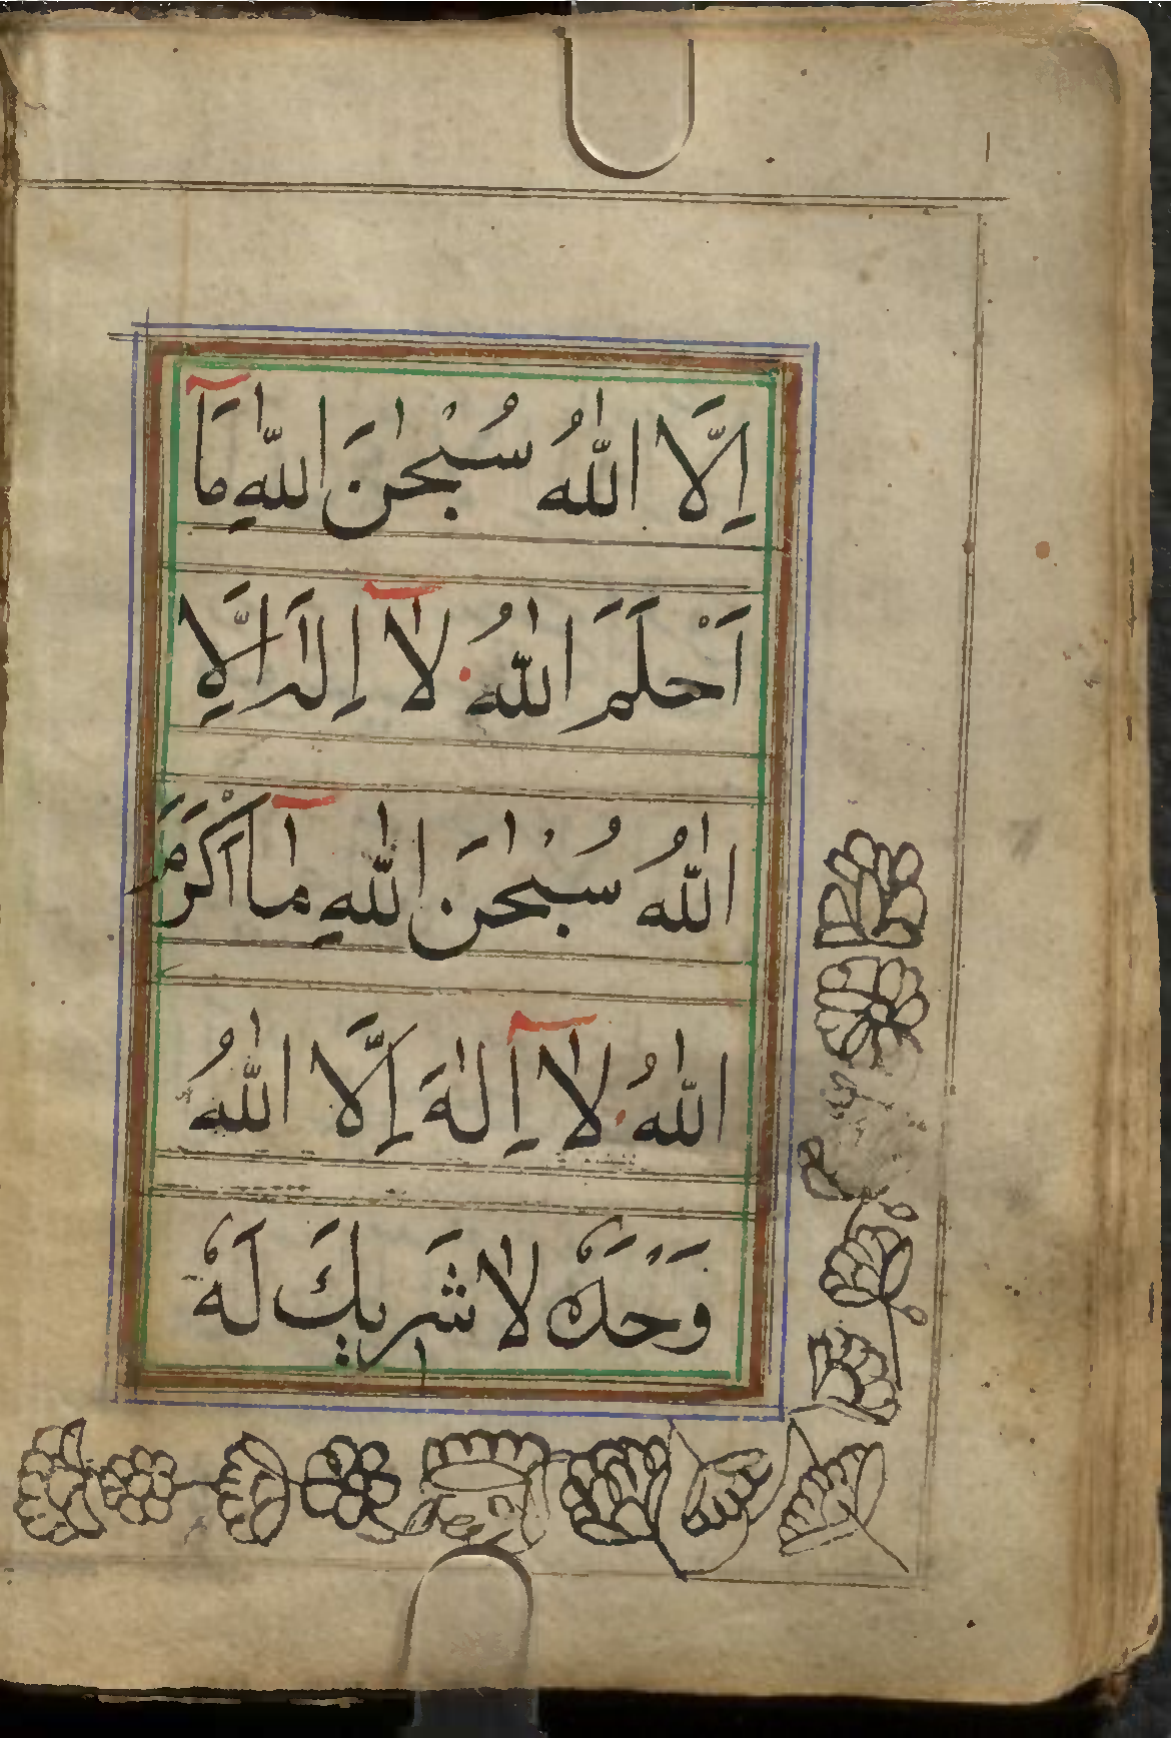 اِلَّا اللّٰهُ سُبْحٰنَ اللّٰهِ مَآ
اَحْلَمَ اللّٰهُ لَآ اِلٰهَ اِلَّا
اللّٰهُ سُبْحٰنَ اللّٰهِ مَآ اَكْرَمَ
اللّٰهُ لَآ اِلٰهَ اِلَّا اللّٰهُ
وَحْدَهٗ لَا شَرِيكَ لَهٗ